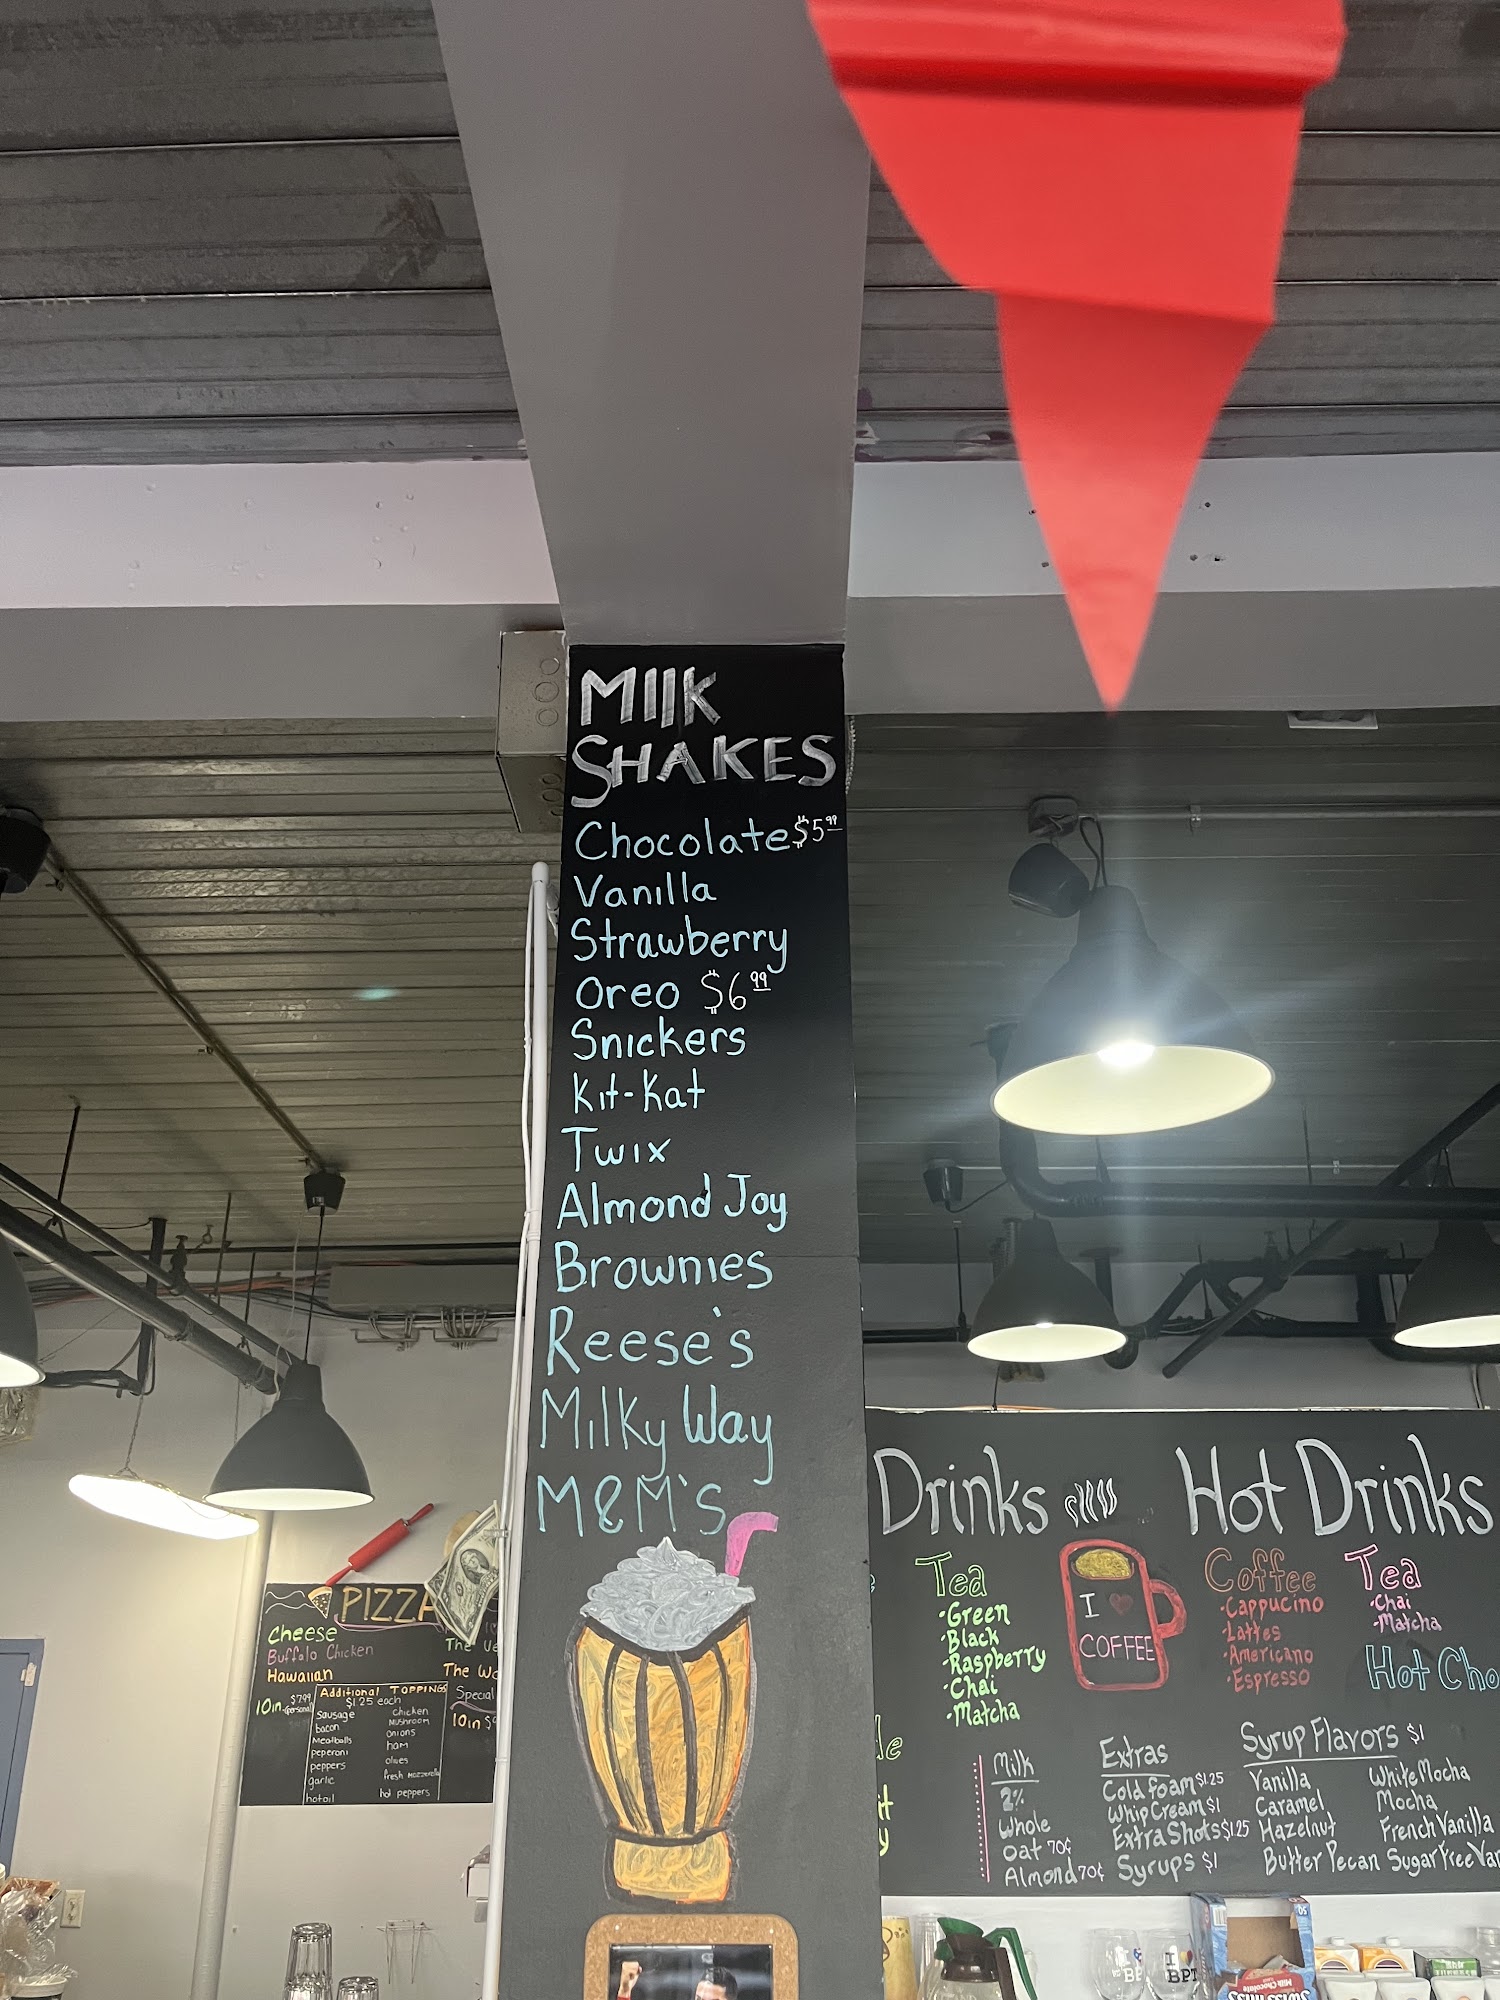 MIlk
SHAKES
Chocolate $5.99
Vanilla
Strawberry
Oreo $6.99
Snickers
Kit-Kat
Twix
Almond Joy
Brownies
Reese's
Milky Way
M&M's
PIZZA
Cheese
Buffalo Chicken
Hawaiian
10in $7.99
(personal)
Additional TOPPINGS
$1.25 each
Sausage
bacon
Meatballs
peperoni
peppers
garlic
hotoil
Chicken
Mushroom
onions
ham
olives
fresh mozzarella
hot peppers
The
The
Special
10in
Drinks
Tea
·Green
·Black
·Raspberry
·Chai
·Matcha
I
COFFEE
Hot Drinks
Coffee
·Cappucino
·Lattes
·Americano
·Espresso
Tea
·Chai
·Matcha
Hot Cho
Milk
2%
Whole
Oat 70¢
Almond 70¢
Extras
Cold foam $1.25
Whip Cream $1
Extra Shots $1.25
Syrups $1
Syrup Flavors $1
Vanilla
Caramel
Hazelnut
Butter Pecan
White Mocha
Mocha
French Vanilla
Sugar Free Van
BPT
I
BPT
SWISS MISS
Milk Chocolate
50